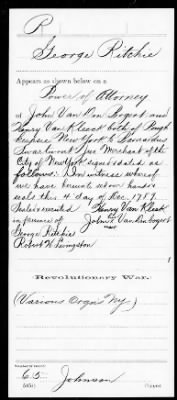 R
George Ritchie
Appears as shown below on a
Power of Attorney
of John Van Den Bogert and
Henry Van Kleeck both of Pough
keepsie New York to
Merchant of the
City of New York signed & dated as
follows: In witness whereof
we have hereunto set our hands &
seals this 4 day of Dec. 1789.
Henry Van Kleek
in presence of John
George Ritchie
Robert H. Livingston
Revolutionary War.
(Various Orgns Ny.)
65 Johnson